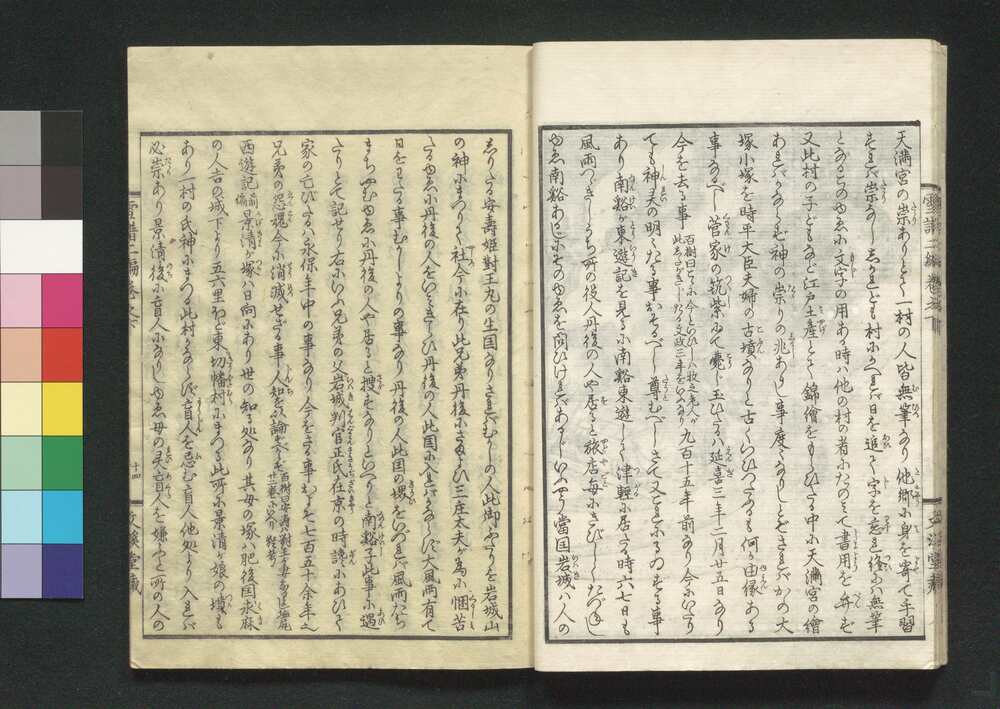 天満宮の祟ありとて一村の人皆無筆なり他郷に身を寄て手習
すれば祟なししかれども村にかへれば日を追て字を忘れ終には無筆
となるこのゆゑに文字の用ある時は他の村の者にたのみて書用を弁ず
又此村の子どもなど江戸土産とて錦繪をもらひたる中に天満宮の繪
あればかならず神の祟りの兆あり事度々なりしとぞさればかの大
塚小塚を時平大臣夫婦の古墳なりと古くいひつたふるも何か由縁ある
事なるべし菅家の筑紫にて薨じ玉ひたるは延喜三年二月廿五日なり
今を去る事九百十五年前なり今にいたり
ても神灵の明々たる事おそるべし尊むべしさて又これに似たる事
あり南谿が東遊記を見るに南谿東遊して津輕に居たる時六七日も
風雨つゞきしゆゑ所の役人丹後の人や居ると旅店毎にきびしくたづねし
ゆゑ南谿あるじにそのゆゑを問ひければあるじいふやう當国岩城は人の
しりたる安壽姫對王丸の生国なりさればむかしの人此御やうを岩城山
の神にまつりて社今に在り此兄弟丹後にさまよひ三庄太夫が為に困苦
たるゆゑに丹後の人をいみきらひ丹後の人此国に入ればかならず大風雨有て
日をわたる事むかしよりの事なり丹後の人此国の堺をいづれば風雨たち
まちやむゆゑに丹後の人や居ると捜すなりといへりと南谿子此事に遇
たりとて記せり右にいふ兄弟の父岩城判官正氏在京の時讒にあひて
家の亡びたるは永保年中の事なり今をさる事およそ七百五十余年也
兄弟の怨魂今に消滅せざる事人知を以論ずべからず
西遊記前編景清が塚は日向にあり世の知る処なり其母の塚は肥後国求麻
の人吉の城下より五六里ほど東切幡村にあり此所に景清が娘の墳も
あり一村の氏神にまつる此村かならず盲人を忌む盲人他処より入れば
必祟あり景清後に盲人になりしゆゑ母の灵盲人を嫌ふと所の人の
雪譜二編巻之
十四
文溪堂藏